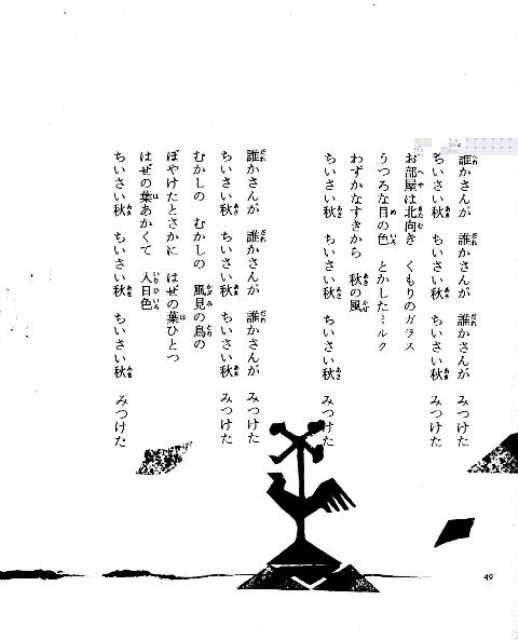 誰かさんが　誰かさんが　誰かさんが　みつけた
ちいさい秋　ちいさい秋　ちいさい秋　みつけた
お部屋は北向き　くもりのガラス
うつろな目の色　とかしたミルク
わずかなすきから　秋の風
ちいさい秋　ちいさい秋　ちいさい秋　みつけた
誰かさんが　誰かさんが　誰かさんが　みつけた
ちいさい秋　ちいさい秋　ちいさい秋　みつけた
むかしの　むかしの　風見の鳥の
ぼやけたとさかに　はぜの葉ひとつ
はぜの葉あかくて　入日色
ちいさい秋　ちいさい秋　ちいさい秋　みつけた
49